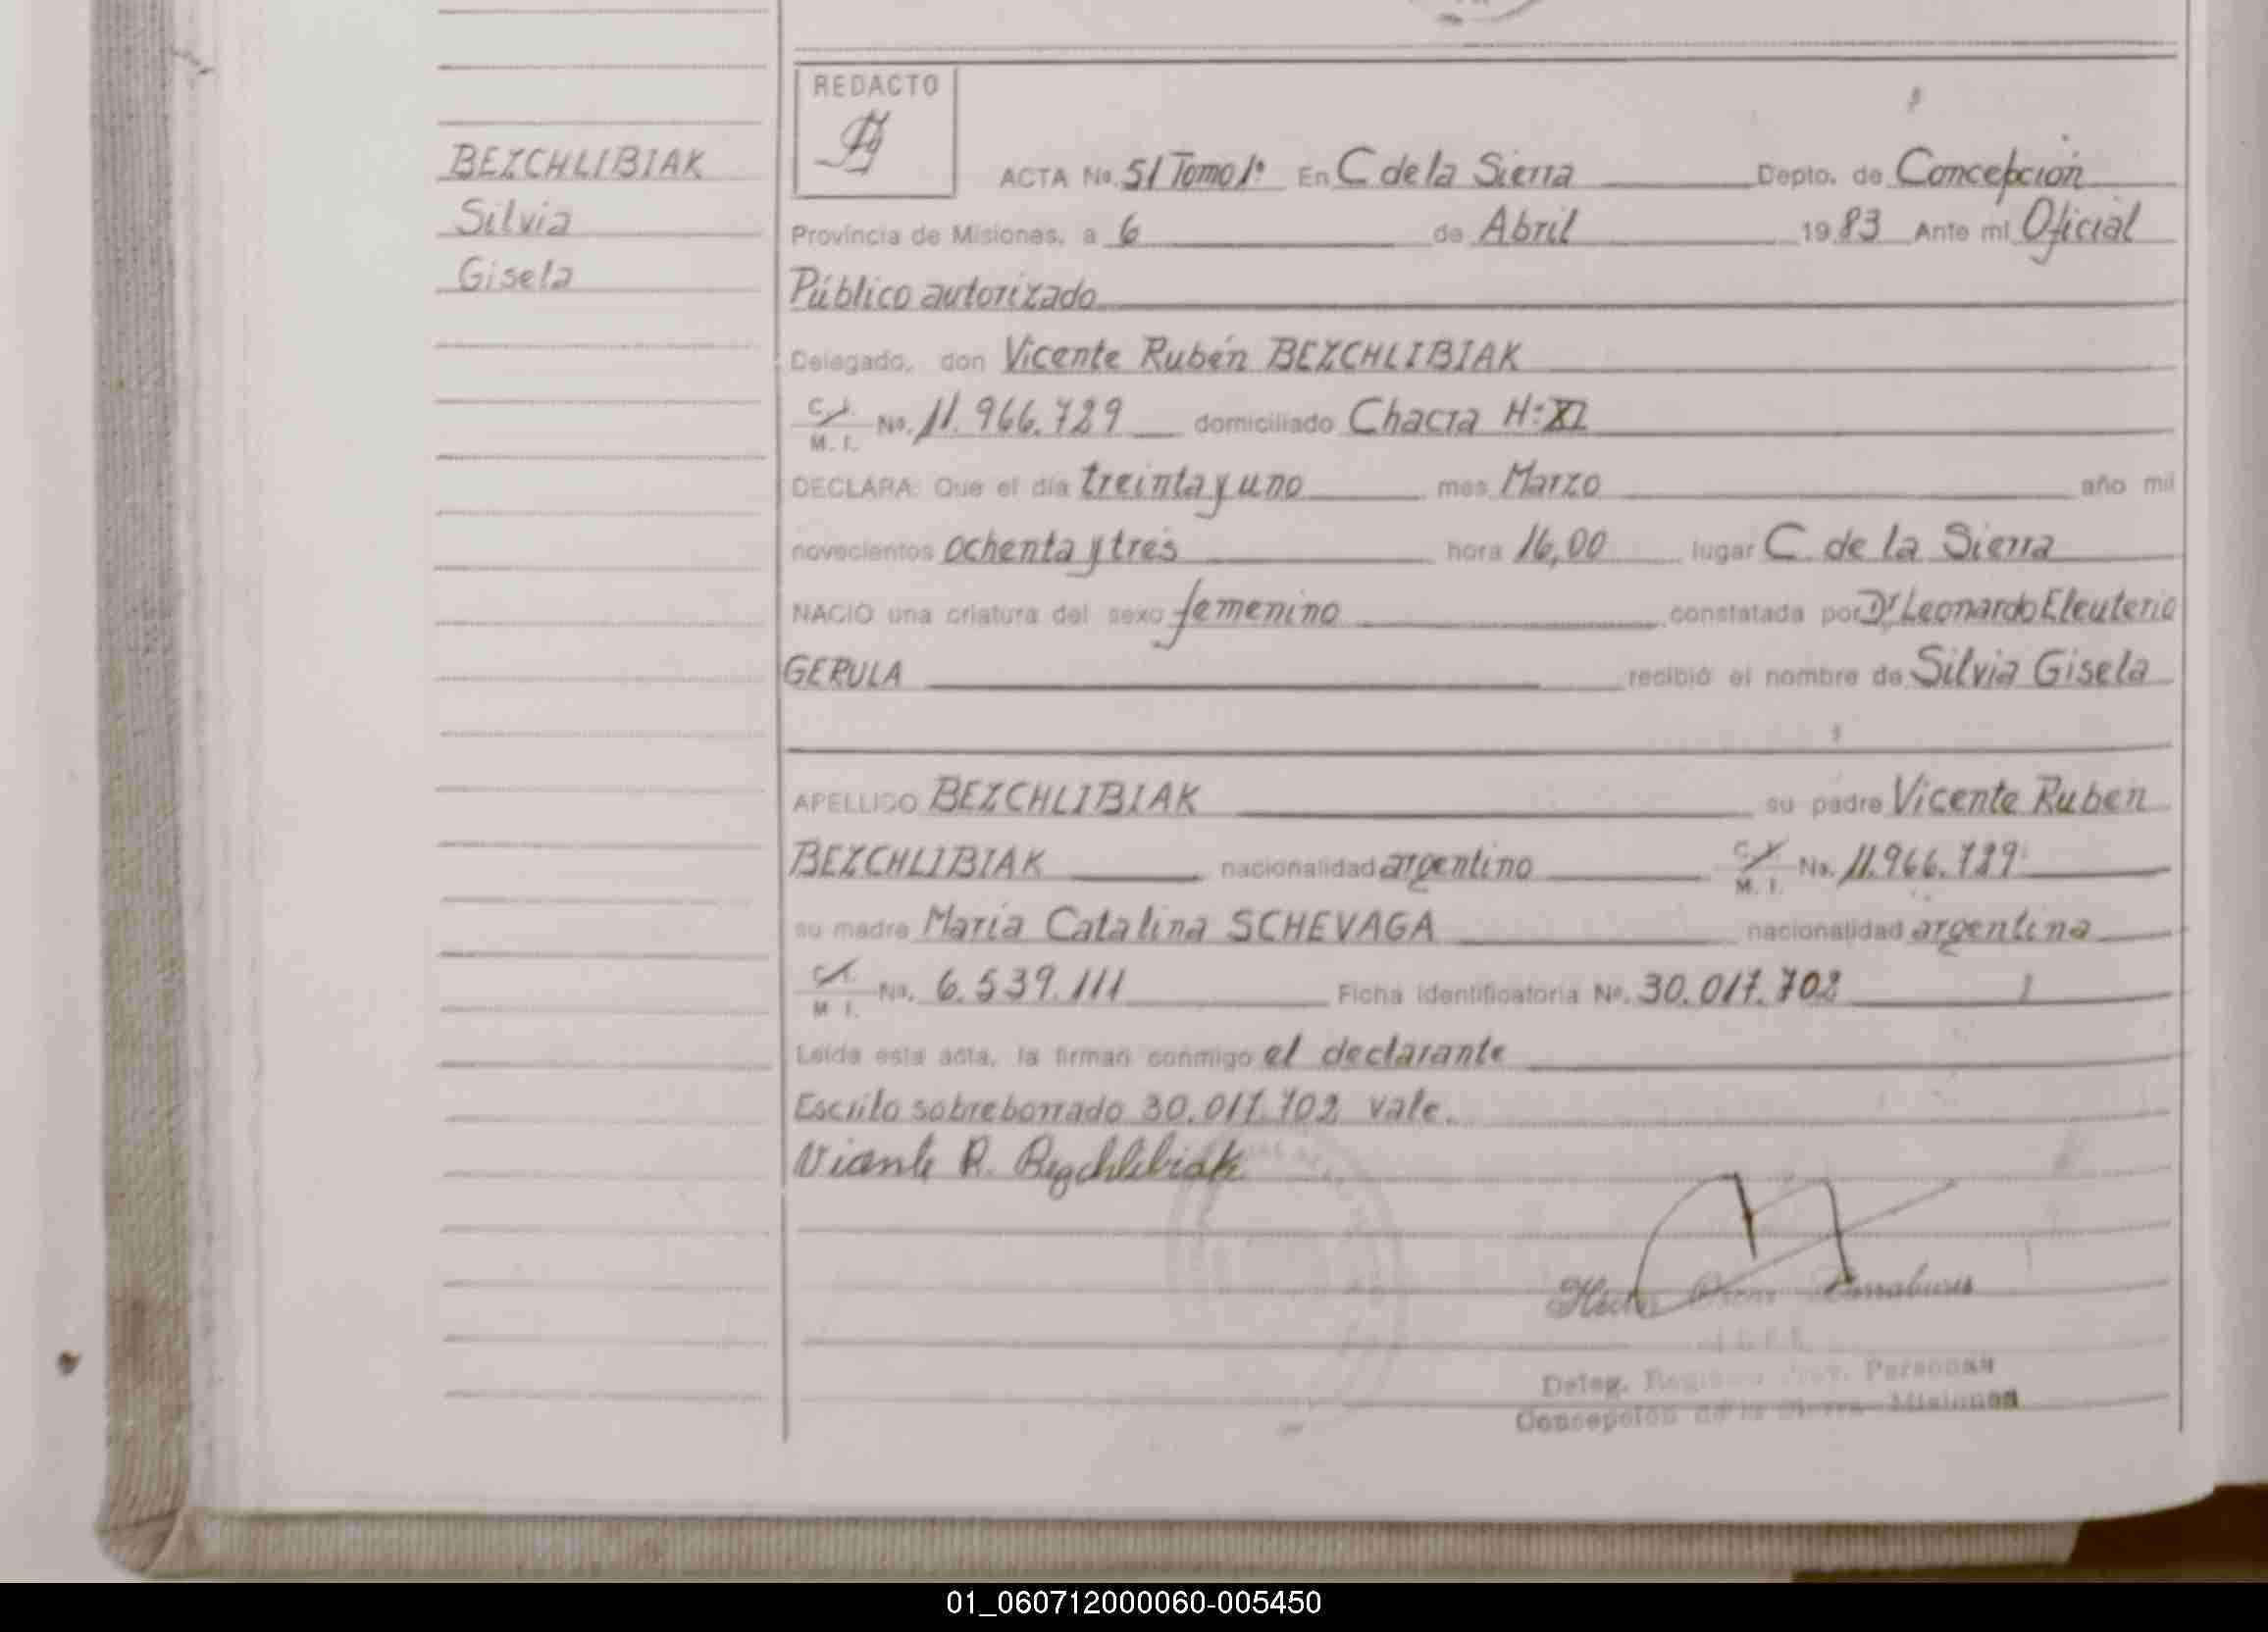 BEZCHLIBIAK
Silvia
Gisela
REDACTO
ACTA No. 51 Tomo 1º En C de la Sierra Depto. de Concepción
Provincia de Misiones, a 6 de Abril 1983 Ante mi Oficial
Público autorizado
Delegado, don Vicente Rubén BEZCHLIBIAK
C. I. M. I. No. 11.966.729 domiciliado Chacra H:XI
DECLARA: Que el día treinta y uno mes Marzo año mil
novecientos ochenta y tres hora 16,00 lugar C. de la Sierra
NACIO una criatura del sexo femenino constatada por Dr Leonardo Eleuterio
GERULA recibió el nombre de Silvia Gisela
APELLIDO BEZCHLIBIAK su padre Vicente Ruben
BEZCHLIBIAK nacionalidad argentino C. I. M. I. No. 11.966.729
su madre María Catalina SCHEVAGA nacionalidad argentina
C. I. M. I. No. 6.539.111 Ficha identificatoria Nº. 30.017.702
Leída esta acta, la firman conmigo el declarante
Escrito sobreborrado 30.017.702 vale.
Vicente R. Bezchlibiak
Deleg. Personas
Concepción de la Sierra Misiones
01_060712000060-005450